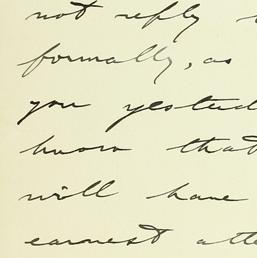 not reply
formally, as
you yesterd
know that
will have
earnest atte